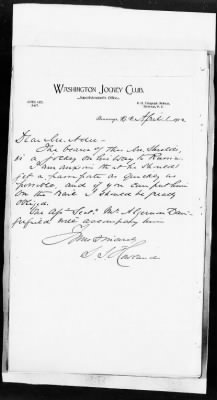 WASHINGTON JOCKEY CLUB.
Superintendent's Office.
Benning, D.C. April 1902
Dear Mr. Adee:—
The bearer of this Mr. Shields,
is a jockey on his way to Russia.
I am anxious that he should
get a passport as quickly as
possible, and if you can put him
on the track I should be greatly
obliged.
Our Asst Secty Mr Algernon Dain-
gerfield will accompany him
Yours Sincerely
S. S. Howland